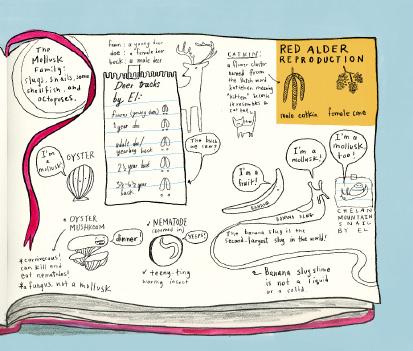 The
Mollusk
Family:
slugs, snails, some
shellfish, and
octopuses.
fawn: a young deer
doe: a female deer
buck: a male deer
Deer tracks
by El:
fawns (young deer)
1 year doe
adult doe/
yearling buck
2½ year buck
buck
The buck
we saw?
CATKIN:
a flower cluster
named from
the Dutch word
katteken, meaning
"kitten" because
it resembles a
cat tail.
RED ALDER
REPRODUCTION
male catkin
female cone
I'm a
mollusk!
OYSTER
I'm a
fruit!
BANANA
I'm a
mollusk!
BANANA SLUG
I'm a
mollusk
too!
CHELAN
MOUNTAIN
SNAIL
BY EL
The banana slug is the
second-largest slug in the world!
OYSTER
MUSHROOM
dinner
carnivorous!
can kill and
eat nematodes!
a fungus, not a mollusk
NEMATODE
(zoomed in)
YIPES!
teeny-tiny
boring insect
Banana slug slime
is not a liquid
or a solid